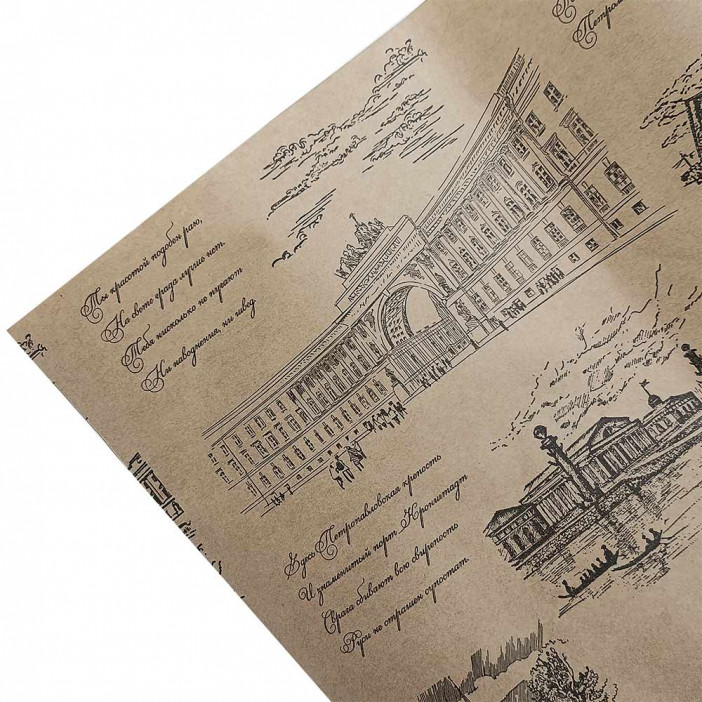 Ты красотой подобен раю,
На свете града лучше нет.
Тебя нисколько не пугают
Ни наводнения, ни швед
Здесь Петропавловская крепость
И знаменитый порт Кронштадт
С врага сбивают всю свирепость
Руси не страшен супостат.